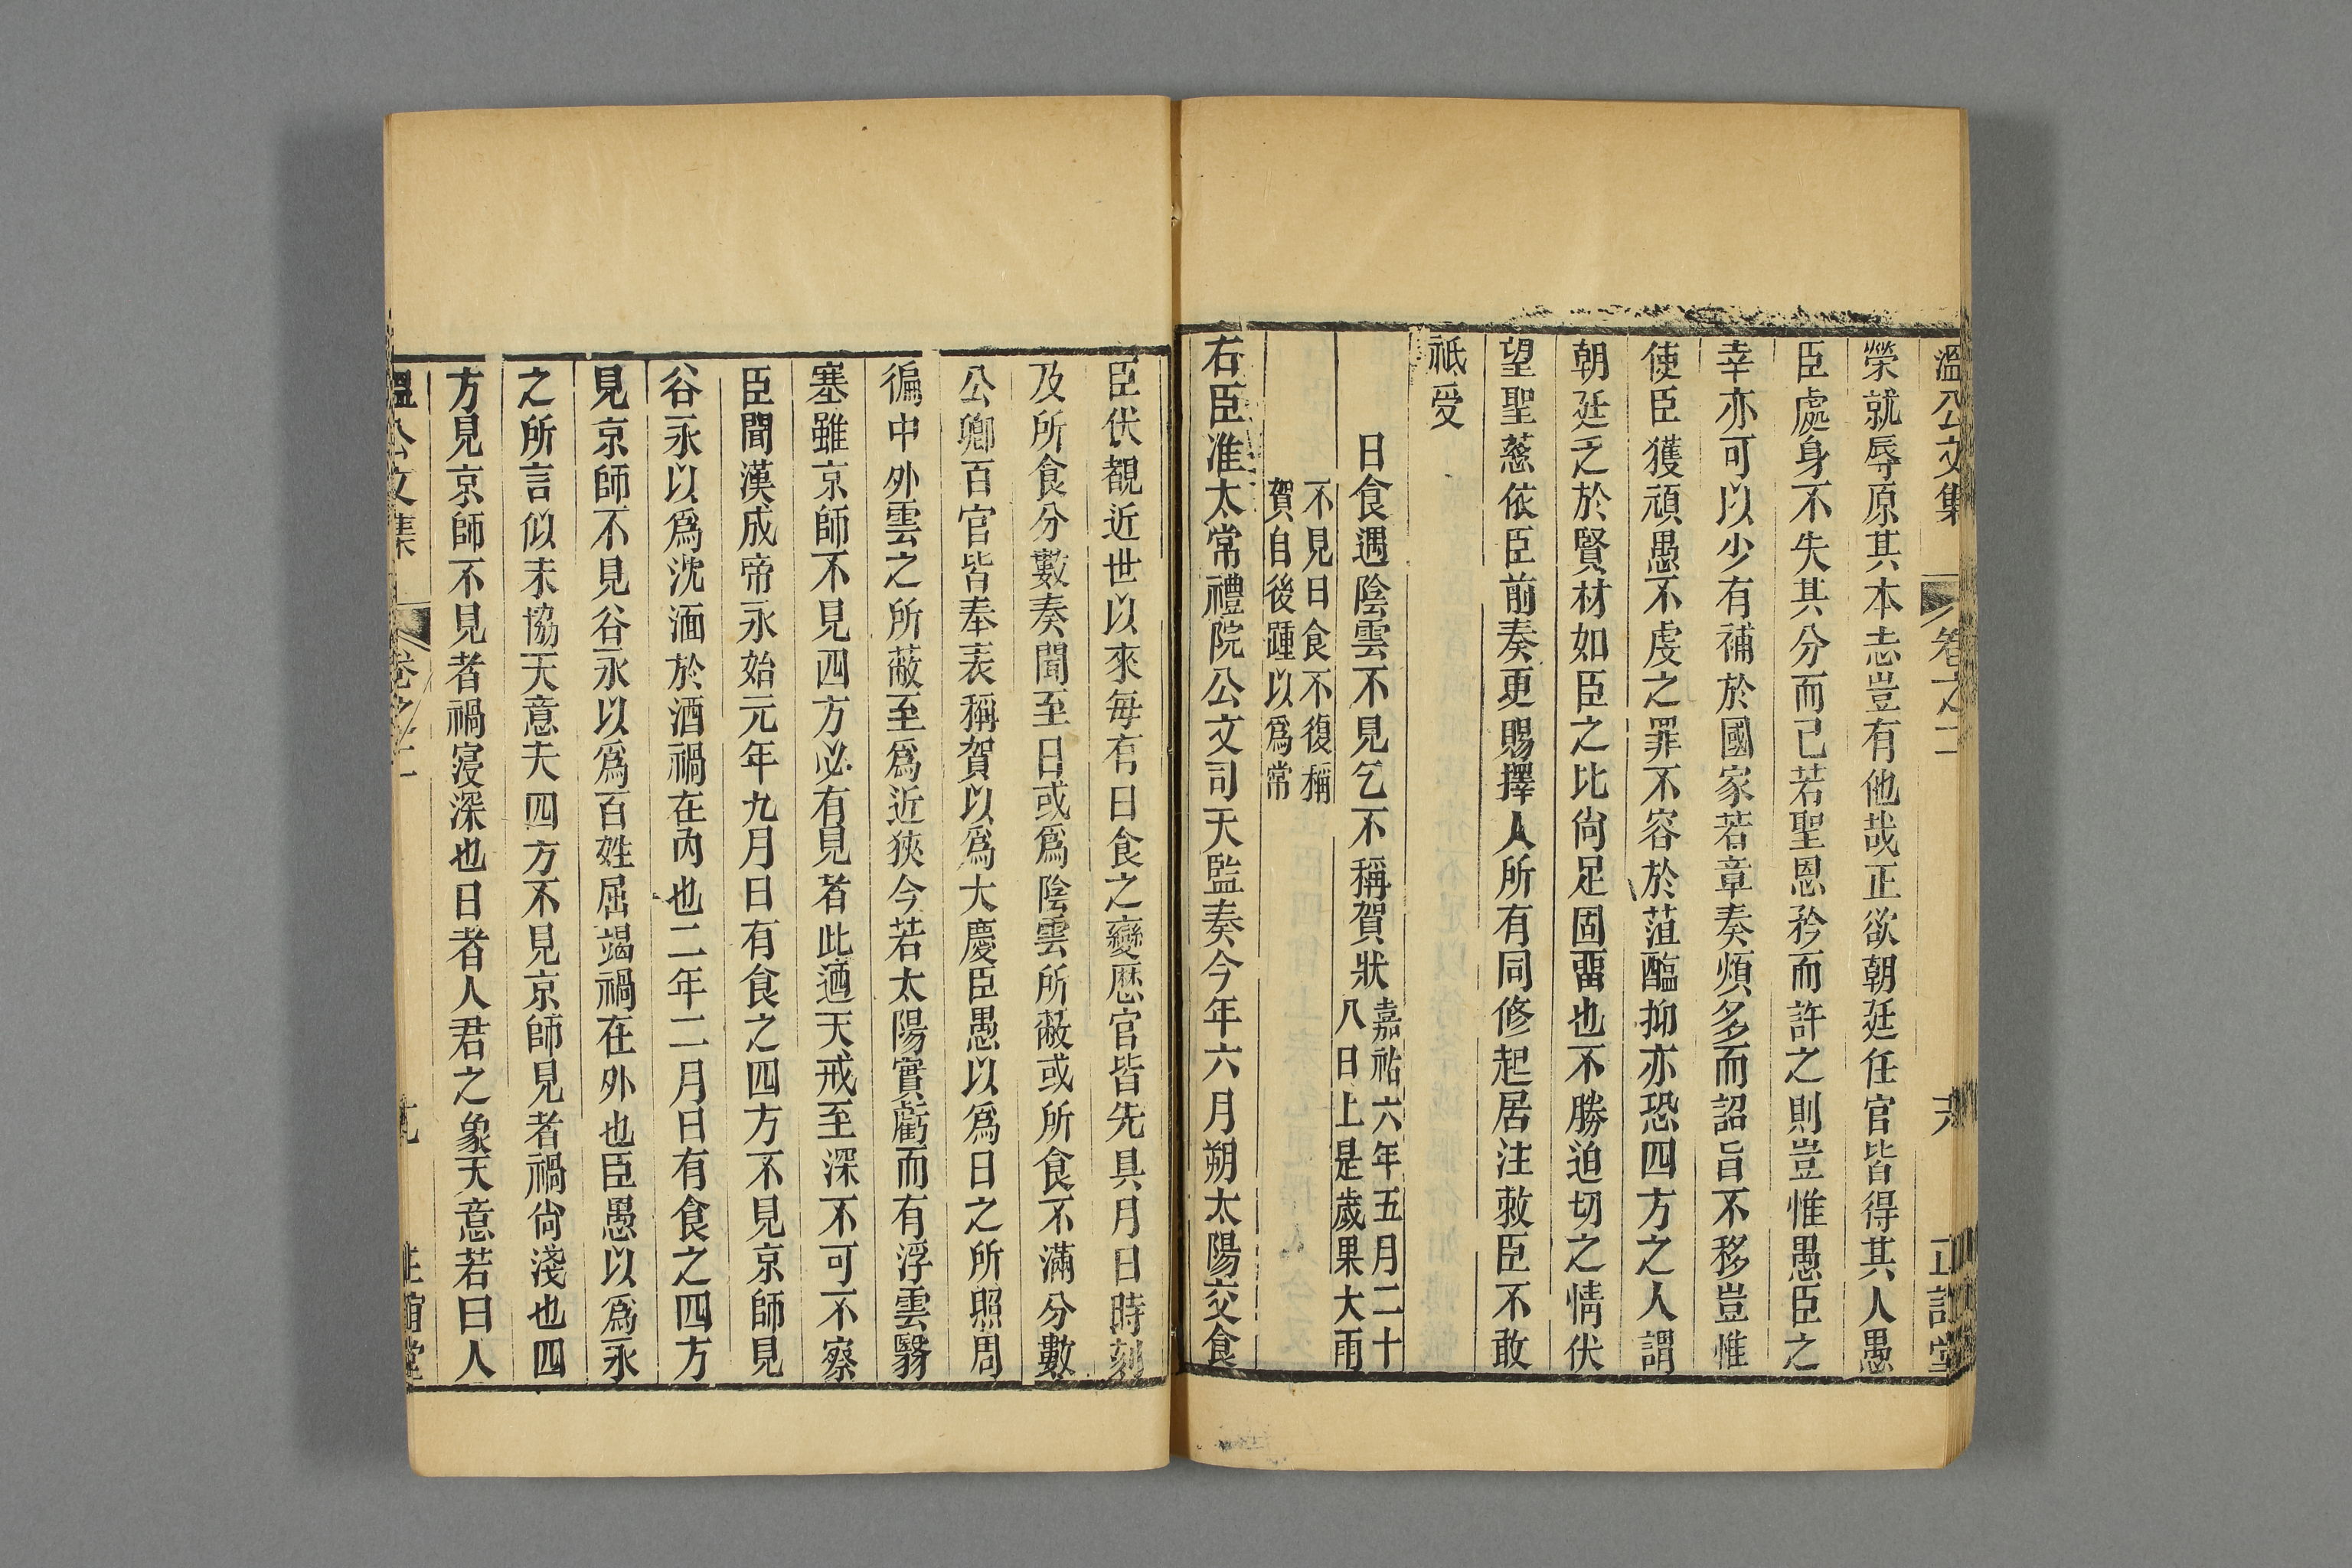 溫公文集 卷之二
榮就辱原其本志豈有他哉正欲朝廷任官皆得其人愚
臣處身不失其分而已若聖恩矜而許之則豈惟愚臣之
幸亦可以少有補於國家若章奏煩多而詔旨不移豈惟
使臣獲頑愚不虔之罪不容於菹醢抑亦恐四方之人謂
朝廷乏於賢材如臣之比尙足固畱也不勝迫切之情伏
望聖慈依臣前奏更賜擇人所有同修起居注敕臣不敢
祗受
日食遇陰雲不見乞不稱賀狀
嘉祐六年五月二十
八日上是歲果大雨
不見日食不復稱
賀自後踵以爲常
右臣准太常禮院公文司天監奏今年六月朔太陽交食
臣伏覩近世以來每有日食之變厯官皆先具月日時刻
及所食分數奏聞至日或爲陰雲所蔽或所食不滿分數
公卿百官皆奉表稱賀以爲大慶臣愚以爲日之所照周
徧中外雲之所蔽至爲近狹今若太陽實虧而有浮雲翳
塞雖京師不見四方必有見者此迺天戒至深不可不察
臣聞漢成帝永始元年九月日有食之四方不見京師見
谷永以爲沈湎於酒禍在內也二年二月日有食之四方
見京師不見谷永以爲百姓屈竭禍在外也臣愚以爲永
之所言似未協天意夫四方不見京師見者禍尙淺也四
方見京師不見者禍寖深也日者人君之象天意若曰人
溫公文集 卷之二